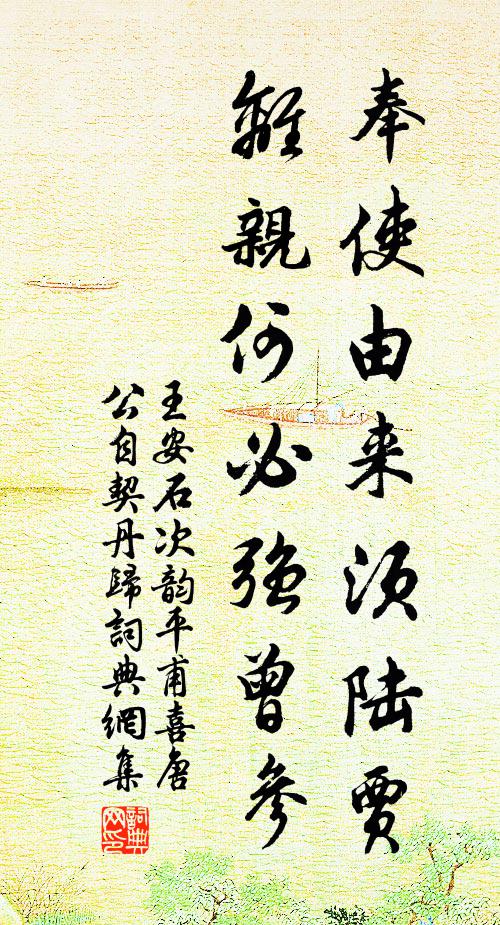 奉使由来須陆賈
離親何必強曾參
王安石次韵平甫喜唐
公自契丹歸詞典網集
詞典
网印